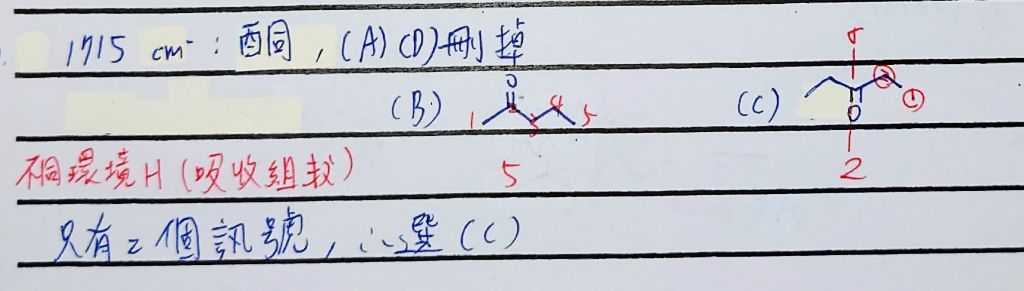 1715 cm⁻ : 酮, (A)(D)刪掉
(B) O 1 3 4 5 (C) O ② ①
不同環境H (吸收組数) 5 2
只有2個訊號, ∴選(C)